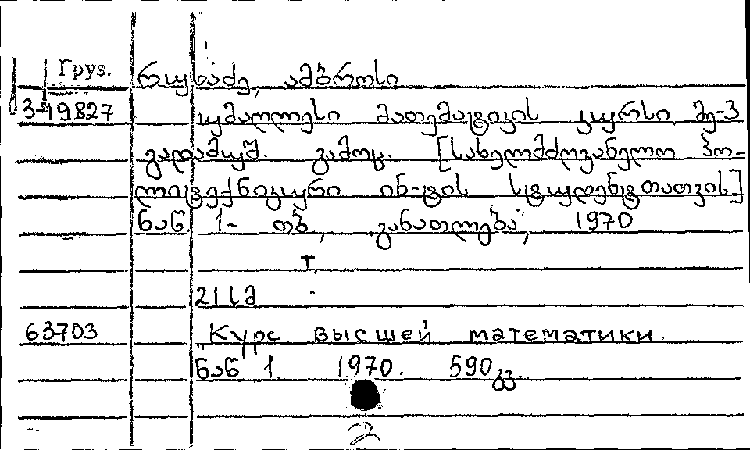 Груз. რუხაძე, ამბროსი
3-19827 უმაღლესი მათემატიკის კურსი, მე-3
გადამუშ. გამოც. [სახელმძღვანელო პო-
ლიტექნიკური ინ-ტის სტუდენტთათვის]
ნაწ 1- თბ, განათლება, 1970
Т.
21 სმ
63703 Курс высшей математики.
ნაწ 1. 1970. 590 გვ.